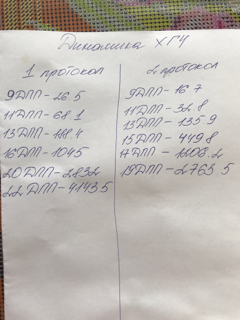 Динамика ХГЧ
1 протокол
9ДПП-26.5
11ДПП-68.1
13ДПП-111.4
16ДПП-1045
20ДПП-2832
22ДПП-4143.5
2 протокол
9ДПП-16.7
11ДПП-32.8
13ДПП-135.9
15ДПП-449.8
17ДПП-1203.2
19ДПП-2763.5